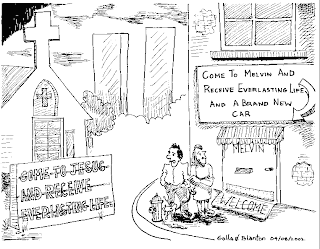 COME TO JESUS
AND RECEIVE
EVERLASTING LIFE
COME TO MELVIN AND
RECEIVE EVERLASTING LIFE
AND A BRAND NEW
CAR
MELVIN
WELCOME